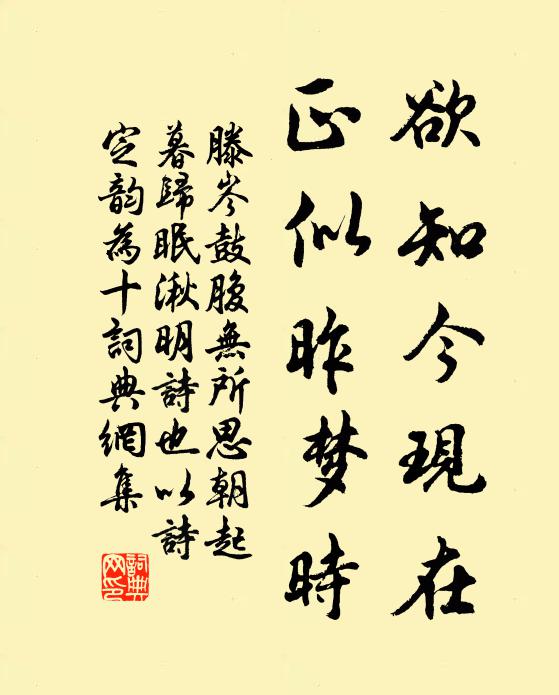 欲知今現在
正似昨梦時
滕岑鼓腹無所思朝起
暮歸眠湫明詩也以詩
定韵為十詞典網集
詞典
网印